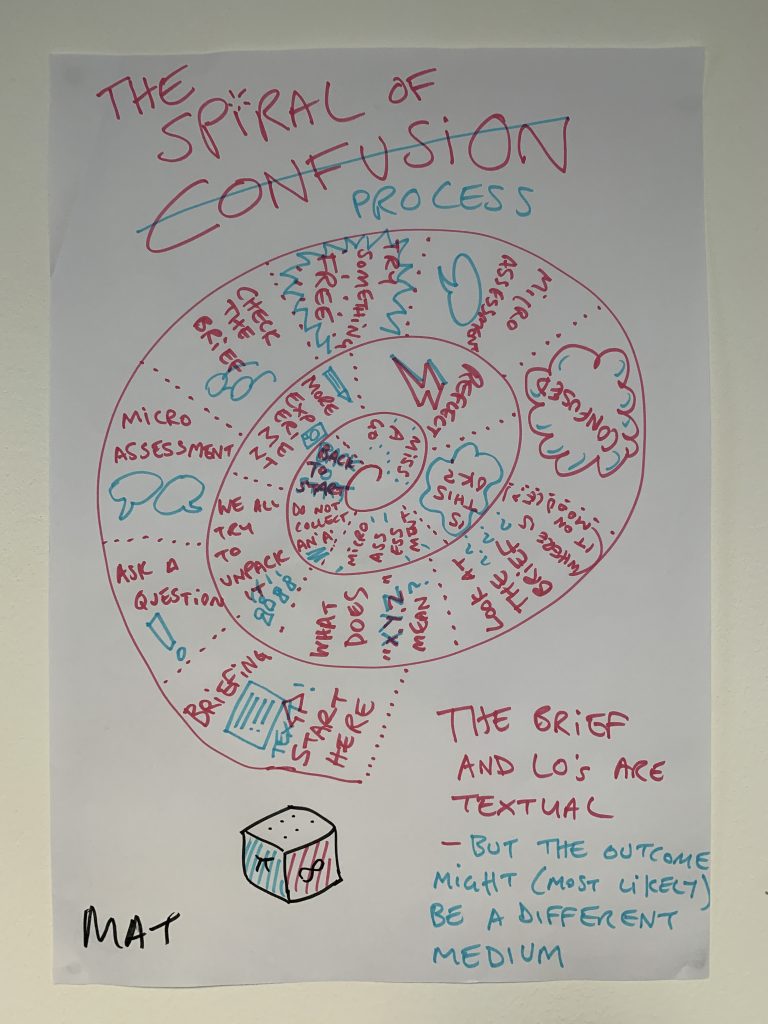 THE
SPIRAL OF
CONFUSION
PROCESS
START
HERE
TEXT!
BRIEFING
ASK A
QUESTION
MICRO
ASSESSMENT
CHECK
THE
BRIEF
TRY
SOMETHING
FREE
MICRO
ASSESSMENT
CONFUSED
WHERE IS
IT ON
MOODLE!?
LOOK AT
THE
BRIEF
WHAT
DOES
"XYZ"
MEAN?
WE ALL
TRY
TO
UNPACK
IT
MORE
EXPERIMENT
REFLECT
IS
THIS
OK?
MICRO
ASS
ESS
MENT
DO NOT
COLLECT
AN A!
BACK
TO
START
MISS
A
GO
THE BRIEF
AND LO'S ARE
TEXTUAL
- BUT THE OUTCOME
MIGHT (MOST LIKELY)
BE A DIFFERENT
MEDIUM
π 8
MAT